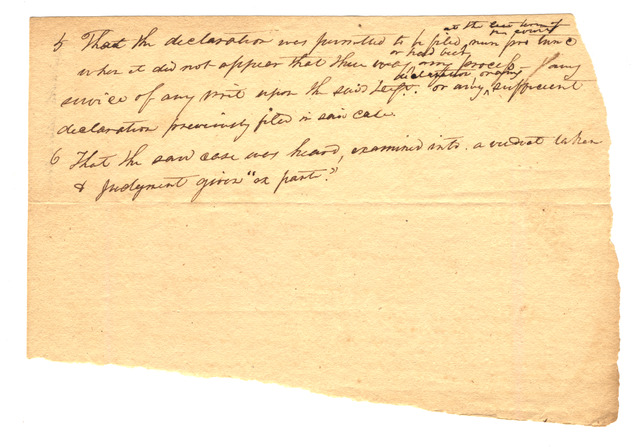 at the last term of
the court
5 That the declaration was permitted to be filed nunc pro tunc
or had been
when it did not appear that there was any process of any
declaration or any
service of any writ upon the said Deft. or any sufficient
declaration previously filed in said case.
6 That the said case was heard, examined into, a verdict taken
& Judgment given "ex parte."